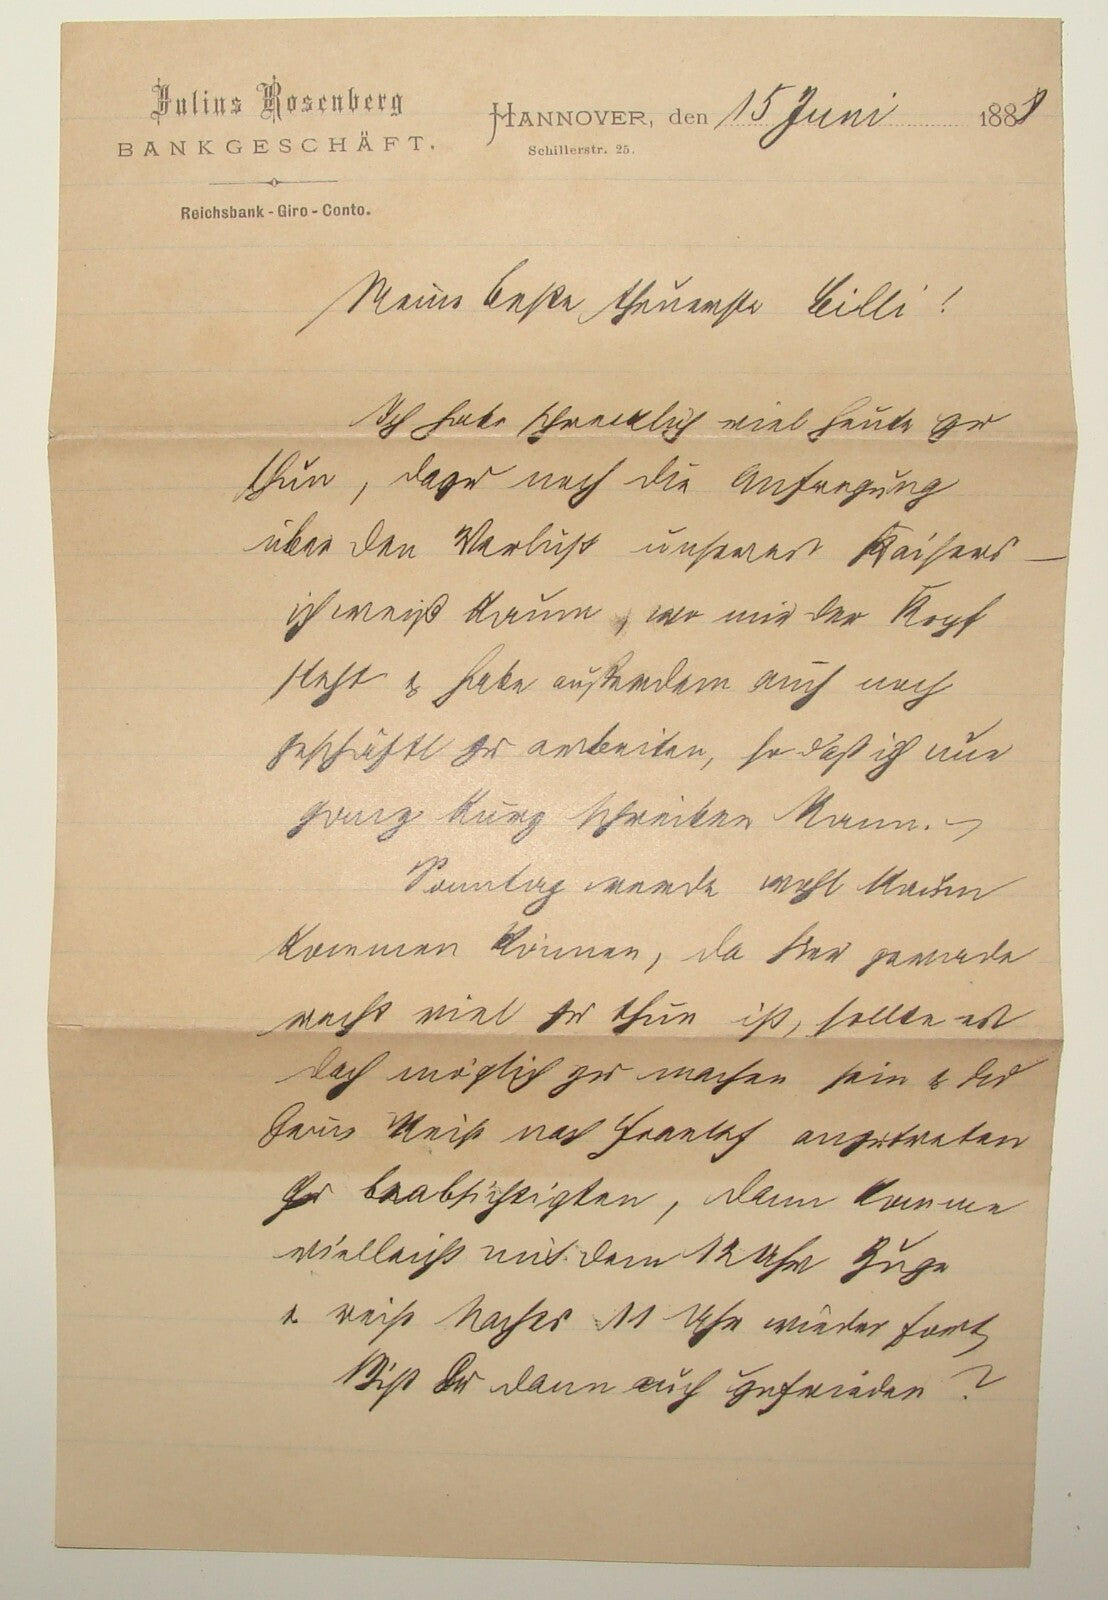 Julius Rosenberg
BANKGESCHÄFT.
Reichsbank-Giro-Conto.
HANNOVER, den 15 Juni 1888
Schillerstr. 25.
Meine beste theuerste Cilli!
Ich habe schrecklich viel heute zu
thun, dazu noch die Aufregung
über den Verlust unseres Kaisers —
ich weiß kaum, wo mir der Kopf
steht & habe außerdem auch noch
geschäftl zu arbeiten, so daß ich nur
ganz kurz schreiben kann. —
Sonntag werde wohl kaum
kommen können, da hier gerade
recht viel zu thun ist, sollte es
doch möglich zu machen sein &
Reise nach Frankf anzutreten
zu beabsichtigten, dann komme
vielleicht mit dem 12 Uhr Zuge
& reise Nachts 11 Uhr wieder fort,
Bist Du dann auch zufrieden?